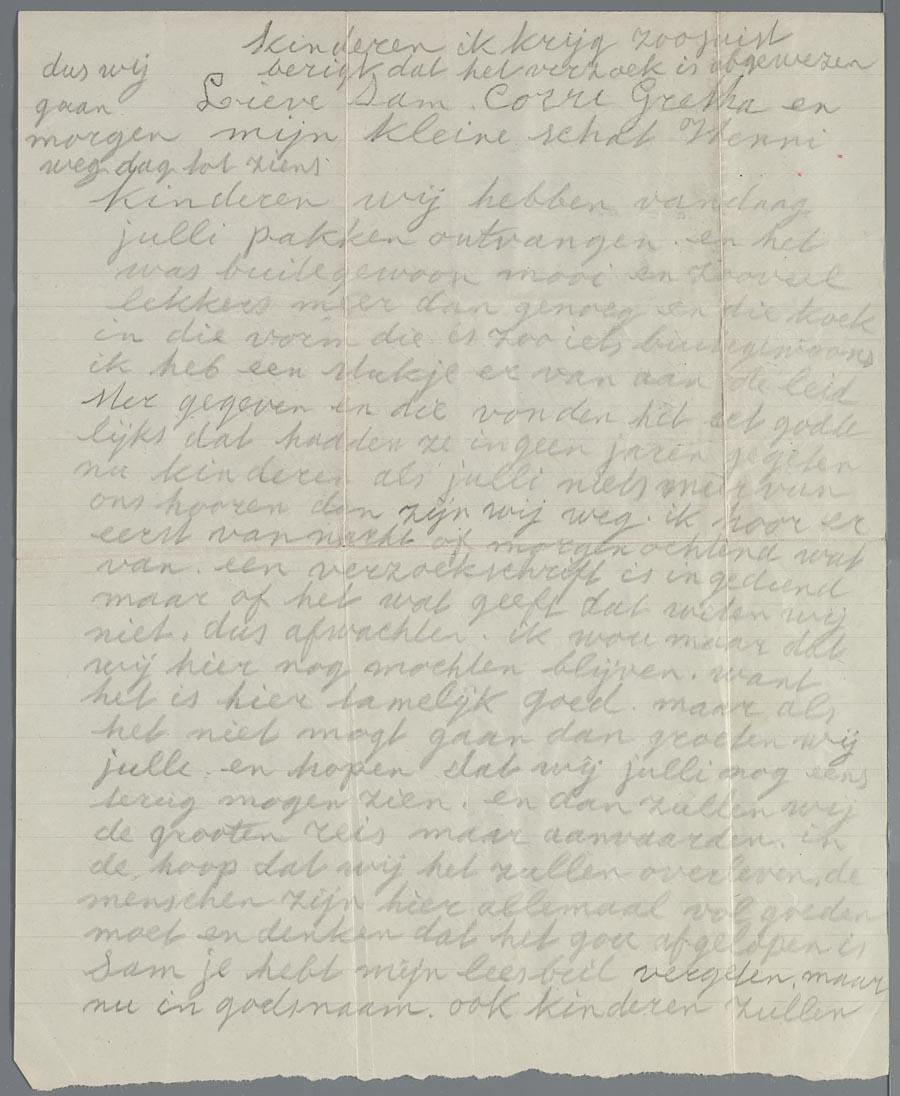 kinderen ik krijg zoojuist
berigt dat het verzoek is afgewezen
dus wij
gaan
morgen
weg dag tot ziens
Lieve Sam. Corri Gretha en
mijn kleine schat Henni
kinderen wij hebben vandaag
julli pakken ontvangen. en het
was buitegewoon mooi en zooveel
lekkers meer dan genoeg en die koek
in die vorm die is zoo iets buitegewoons
ik heb een stukje er van aan de leid
ster gegeven en die vonden het iet godde
lijks dat hadden ze ingeen jaren gegeten
nu kinderen als julli niets meer van
ons hooren dan zijn wij weg. ik hoor er
eerst vannacht of morgenochtend wat
van. een verzoekschrift is ingediend
maar of het wat geeft dat weten wij
niet. dus afwachten. ik wou maar dat
wij hier nog mochten blijven. want
het is hier tamelijk goed. maar als
het niet mogt gaan dan groeten wij
julli. en hopen dat wij julli nog eens
terug mogen zien. en dan zullen wij
de grooten reis maar aanvaarden. in
de hoop dat wij het zullen overleven. de
menschen zijn hier allemaal vol goeden
moet en denken dat het gou afgelopen is
Sam je hebt mijn leesbril vergeten. maar
nu in godsnaam. ook kinderen zullen